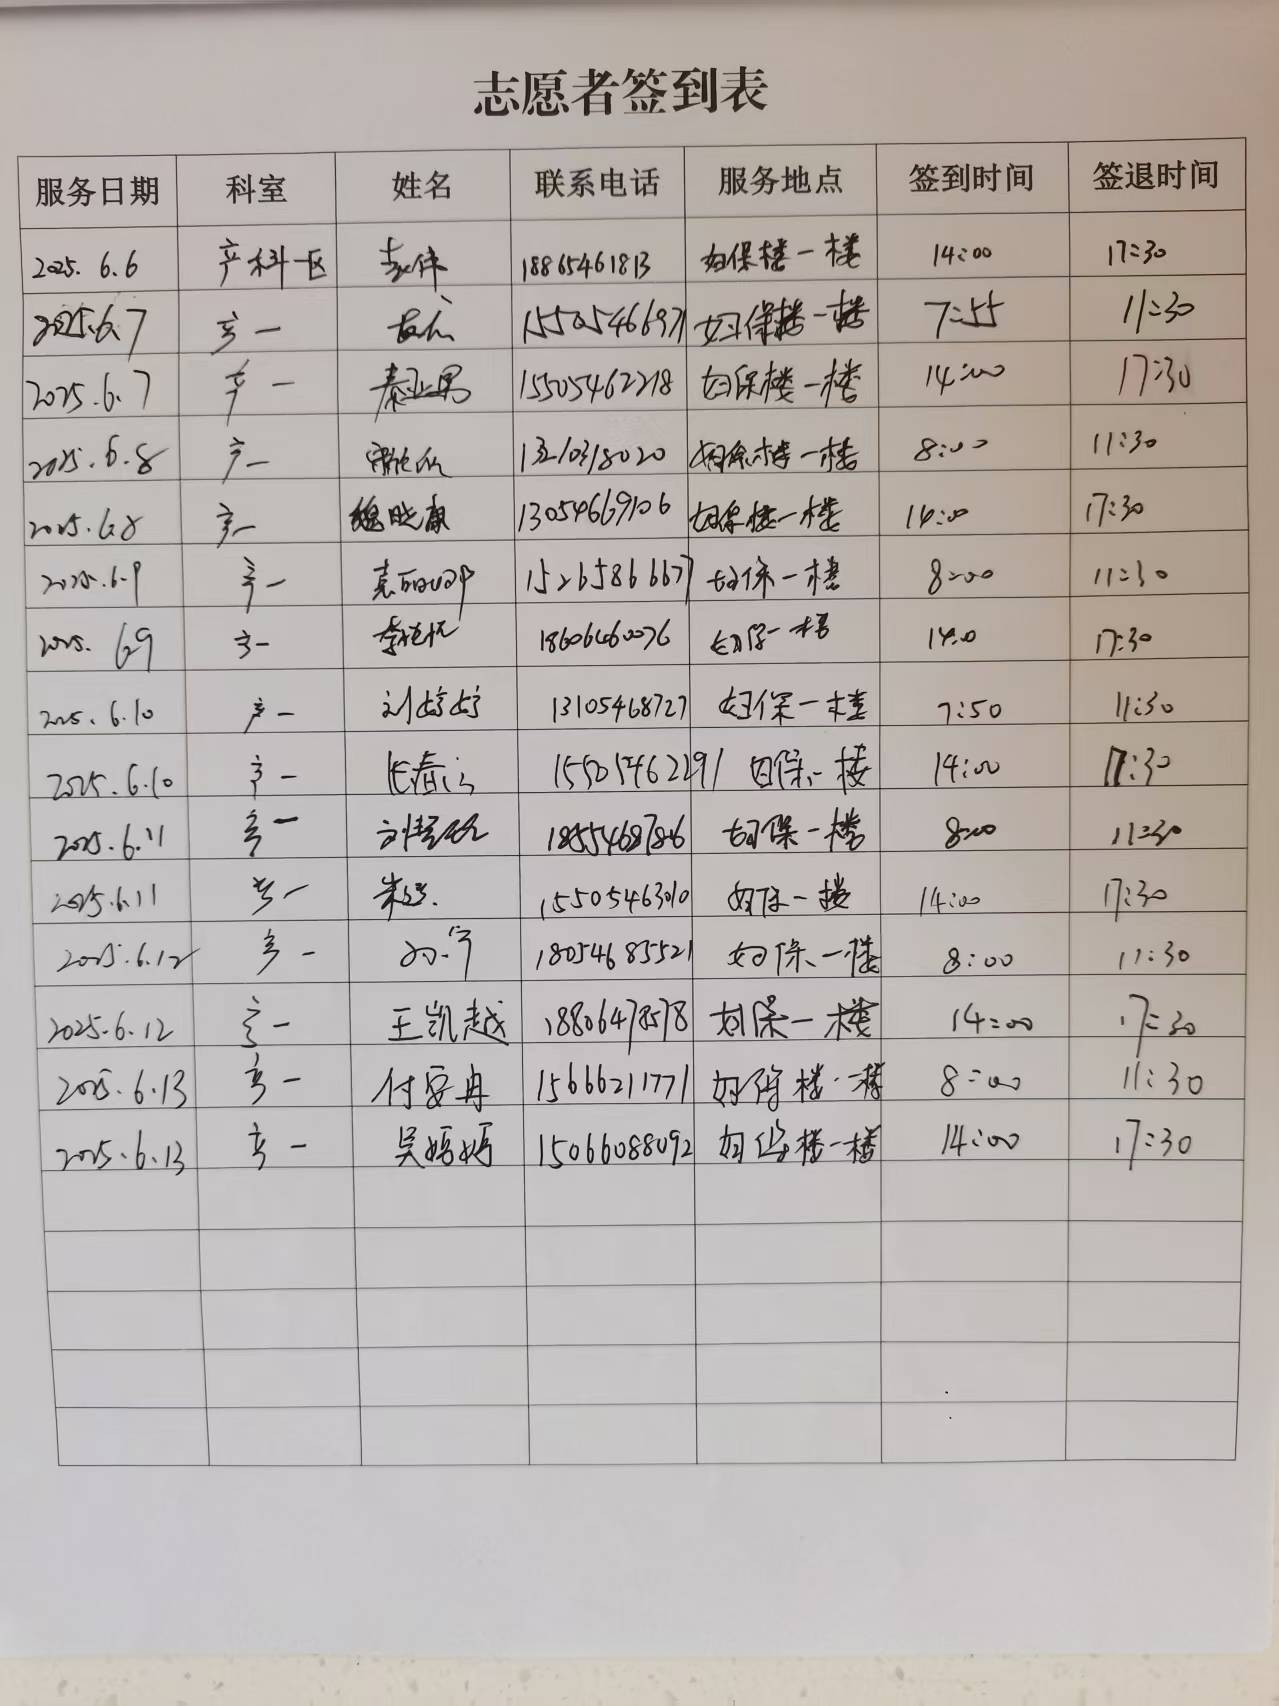 志愿者签到表
服务日期 科室 姓名 联系电话 服务地点 签到时间 签退时间
2025.6.6 产科一区 18865461813 妇保楼一楼 14:00 17:30
2025.6.7 产一 妇保楼一楼 7:55 11:30
2025.6.7 产一 秦亚男 15505462218 妇保楼一楼 14:00 17:30
2025.6.8 产一 13210318020 妇保楼一楼 8:00 11:30
2025.6.8 产一 魏晓康 13054669106 妇保楼一楼 14:00 17:30
2025.6.9 产一 15265866677 妇保一楼 8:00 11:30
2025.6.9 产一 18606460076 妇保一楼 14:0 17:30
2025.6.10 产一 刘婷婷 13105468727 妇保一楼 7:50 11:30
2025.6.10 产一 15505462291 妇保一楼 14:00 17:30
2025.6.11 产一 妇保一楼 8:00 11:30
2025.6.11 产一 15505463010 妇保一楼 14:00 17:30
2025.6.12 产一 18054685521 妇保一楼 8:00 11:30
2025.6.12 产一 王凯越 18806478578 妇保一楼 14:00 17:30
2025.6.13 产一 付安冉 15666211771 妇保楼一楼 8:00 11:30
2025.6.13 产一 吴嫣嫣 15066088092 妇保楼一楼 14:00 17:30